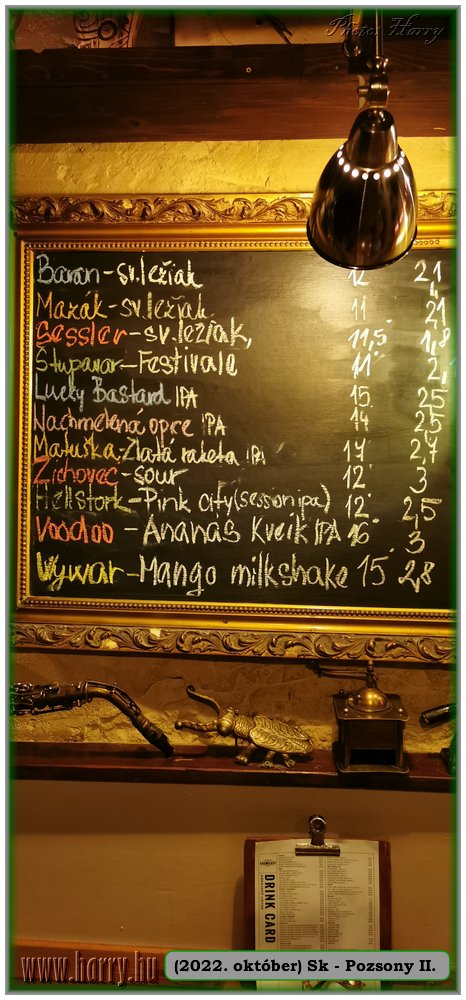 Photos Harry
Baran-sv.ležiak 12° 2,1
Mazák-sv.ležjak. 11 2,1
Sessler-sv.ležiak, 11,5° 1,8
Stupavar-Festivale 11° 2,
Lucky Bastard IPA 15 2,5
Nachmelená opice IPA 14 2,5
Matuška-Zlatá raketa IPA 17 2,7
Zichovec-sour 12° 3
Hellstork-Pink city(session ipa) 12° 2,5
Voodoo - Ananás Kveik IPA 16° 3
Vywar-Mango milkshake 15° 2,8
DRINK CARD
www.harry.hu
(2022. október) Sk - Pozsony II.